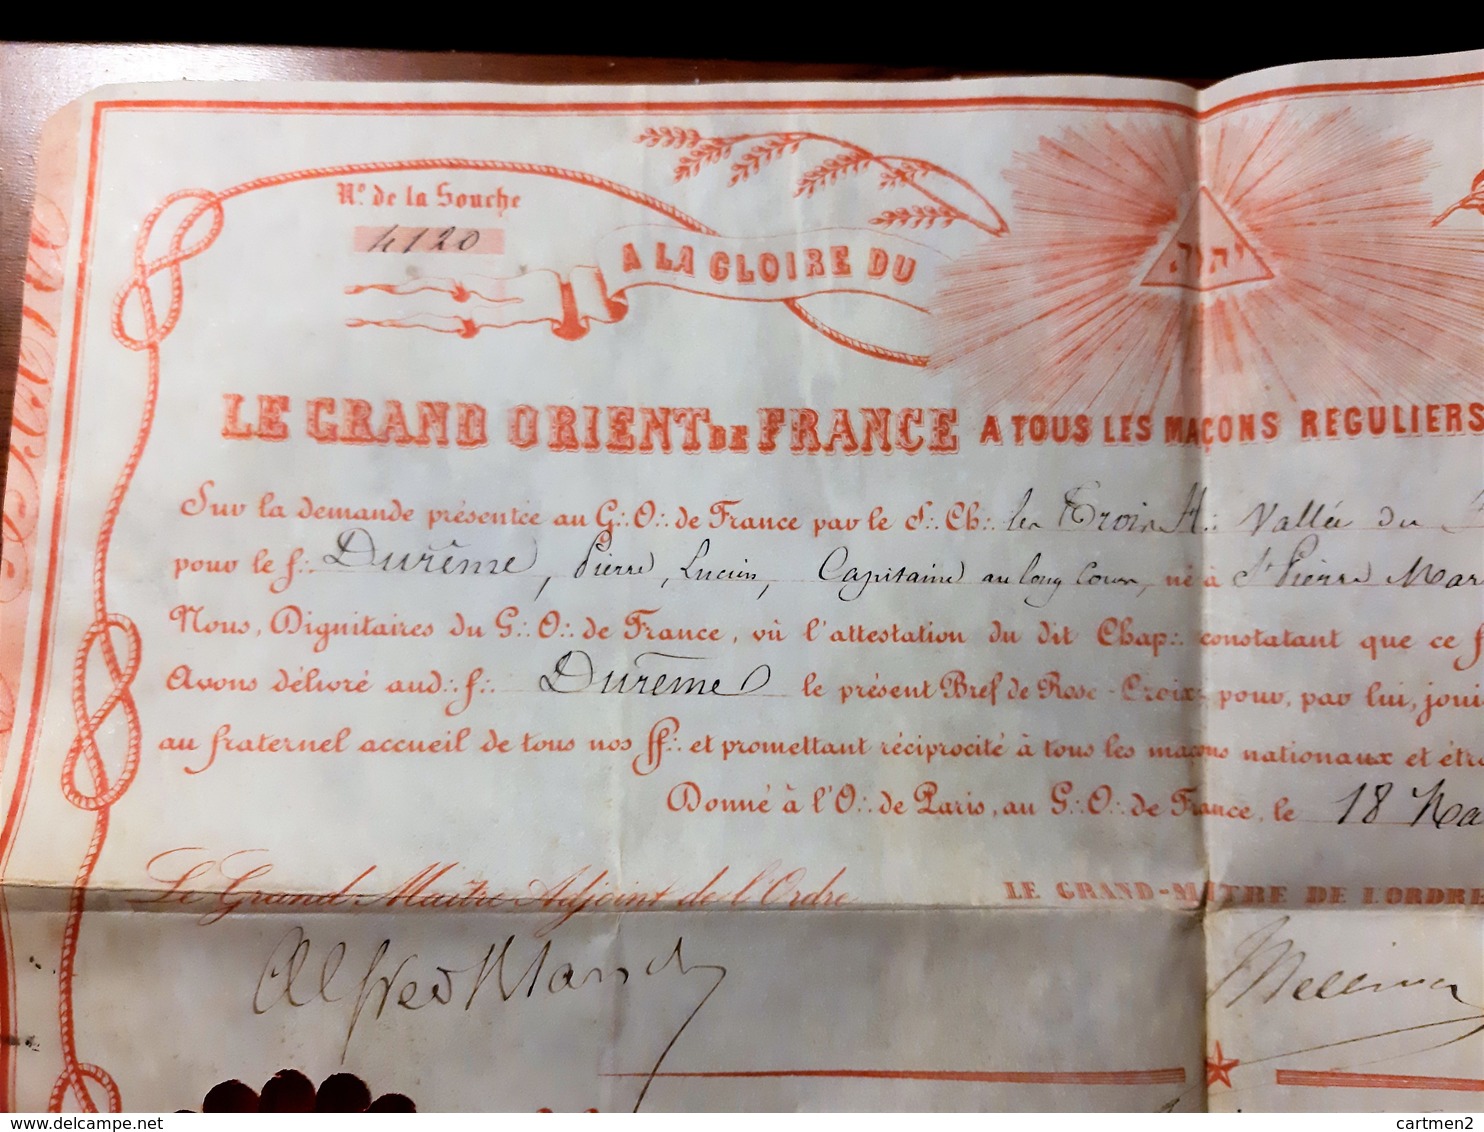 Nº. de la Souche
4120
A LA GLOIRE DU
יהוה
LE GRAND ORIENT DE FRANCE A TOUS LES MAÇONS REGULIERS
Sur la demande présentée au G∴ O∴ de France par le S∴ Ch∴ les Trois H∴ Vallée du
pour le f∴ Durême, Pierre, Lucien, Capitaine au long Cours, né à St Pierre Mar
Nous, Dignitaires du G∴ O∴ de France, vù l'attestation du dit Chap∴ constatant que ce f
Avons délivré aud∴ f∴ Durême le présent Bref de Rose-Croix pour, par lui, joui
au fraternel accueil de tous nos ff∴ et promettant réciprocité à tous les maçons nationaux et étr
Donné à l'O∴ de Paris, au G∴ O∴ de France, le 18 Ma
Le Grand Maître Adjoint de l'Ordre
LE GRAND-MAITRE DE L'ORDRE
Alfred Bland
Mellinet
cartmen2